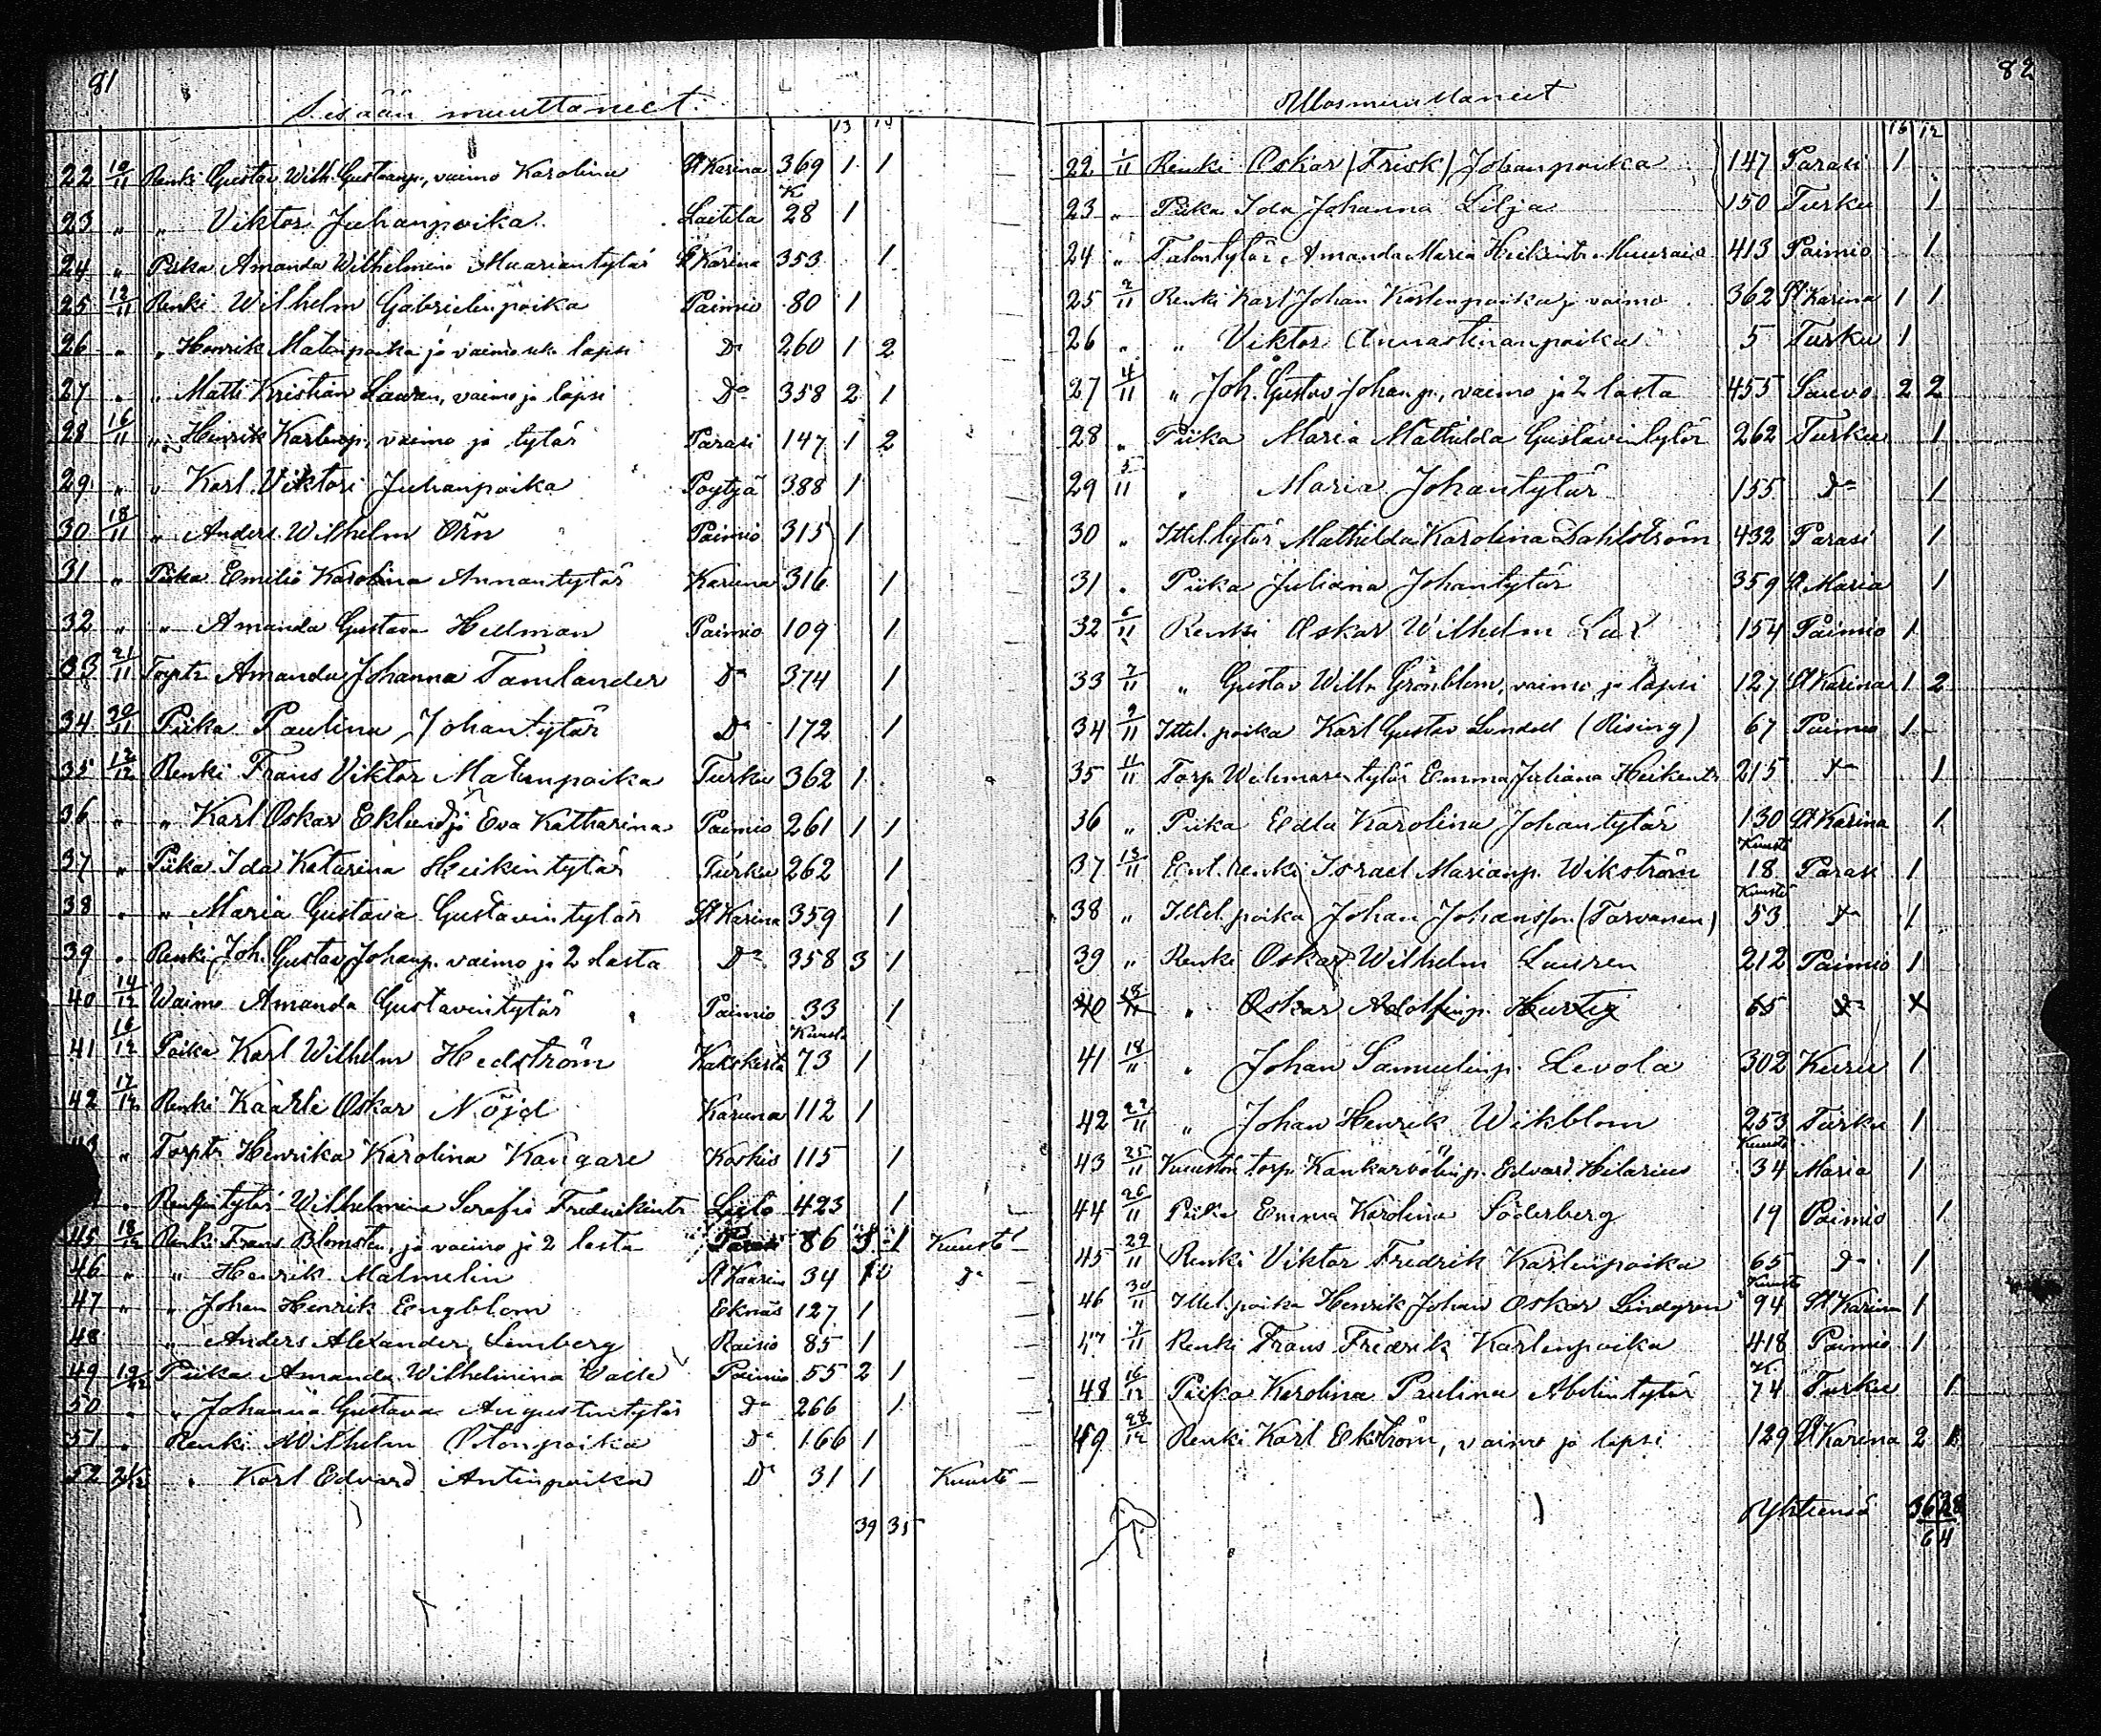 81
Sisään muuttaneet.
13 14
22 10/11 Renki Gustav Wilh. Gustavinp., vaimo Karolina St Karina 369 1 1
23 „ „ Viktor Juhanpoika Laitila K 28 1
24 „ Piika Amanda Wilhelmina Maariantytär St Karina 353 1
25 12/11 Renki Wilhelm Gabrielinpoika Paimio 80 1
26 „ „ Henrik Matinpoika ja vaimo sek. lapsi Do 260 1 2
27 „ „ Matti Kristian Lauren, vaimo ja lapsi Do 358 2 1
28 16/11 „ Henrik Karlenp., vaimo ja tytär Parasi 147 1 2
29 „ „ Karl Viktori Juhanpoika Pöytyä 388 1
30 18/11 „ Anders Wilhelm Öhn Paimio 315 1
31 „ Piika Emilia Karolina Annantytär Karuna 316 1
32 „ „ Amanda Gustava Hellman Paimio 109 1
33 21/11 Torptr. Amanda Johanna Tamlander Do 374 1
34 30/11 Piika Paulina Johantytär Do 172 1
35 12/12 Renki Frans Viktor Matinpoika Turku 362 1
36 „ „ Karl Oskar Eklund ja Eva Katharina Paimio 261 1 1
37 „ Piika Ida Katarina Heikintytär Turku 262 1
38 „ „ Maria Gustava Gustavintytär St Karina 359 1
39 „ Renki Joh. Gustav Johanp. vaimo ja 2 lasta Do 358 3 1
40 14/12 Waimo Amanda Gustavintytär Paimio 33 1
41 16/12 Poika Karl Wilhelm Hedström Kakskerta Kuusto 73 1
42 17/12 Renki Kaarle Oskar Nöjd Karuna 112 1
43 „ Torptr. Henrika Karolina Kangare Koskis 115 1
„ Rengintytär Wilhelmina Serafia Fredrikintr Lieto 423 1
45 18/12 Renki Frans Blomsten, ja vaimo ja 2 lasta Parasi 86 3 1 Kuusto
46 „ „ Henrik Malmelin St Kaarin 34 1 Do
47 „ „ Johan Henrik Engblom Eknäs 127 1
48 „ Anders Alexander Lemberg Raisio 85 1
49 19/12 Piika Amanda Wilhelmina Walle Paimio 55 2 1
50 „ „ Johanna Gustava Augustintytär Do 266 1
51 „ Renki Wilhelm Otonpoika Do 166 1
52 21/12 „ Karl Edvard Antinpoika Do 31 1 Kuusto
39 35
82
Ulosmuuttaneet
22 1/11 Renki Oskar (Frisk) Johanpoika 147 Parasi 1
23 „ Piika Ida Johanna Lilja 150 Turku 1
24 „ Talontytär Amanda Maria Heikintr. 413 Paimio 1
25 2/11 Renki Karl Johan Karlenpoika ja vaimo 362 St Karina 1 1
26 „ „ Viktor Annastinanpoika 5 Turku 1
27 4/11 „ Joh. Gustav Johanp., vaimo ja 2 lasta 455 Sauvo 2 2
28 „ Piika Maria Mathilda Gustavintytär 262 Turku 1
29 5/11 „ Maria Johantytär 155 Do 1
30 „ Ittel. tytär Mathilda Karolina Dahlström 432 Parasi 1
31 „ Piika Juliana Johantytär 359 St Maria 1
32 6/11 Renki Oskar Wilhelm 154 Paimio 1
33 7/11 „ Gustav Wilh. Grönblom, vaimo ja lapsi 127 St Karina 1 2
34 9/11 Ittel. poika Karl Gustav Lundell (Rising) 67 Paimio 1
35 11/11 Torp. tytär Emma Juliana Heikintr 215 Do 1
36 „ Piika Edla Karolina Johantytär 130 St Karina 1
37 13/11 Ent. renki Israel Marianp. Wikström Kuusto 18 Parasi 1
38 „ Ittel. poika Johan Johansson (Tarvanen) Kuusto 53 Do 1
39 „ Renki Oskar Wilhelm Lauren 212 Paimio 1
40 18/11 „ Oskar Adolfinp. Hurtig 65 Do
41 18/11 „ Johan Samuelinp. Levola 302 Kuru 1
42 22/11 „ Johan Henrik Wikblom 253 Turku 1
43 25/11 Kuuston torp. Edvard Hilarius Kuusto 34 Maria 1
44 26/11 Piika Emma Karolina Söderberg 19 Paimio 1
45 29/11 Renki Viktor Fredrik Karlinpoika 65 Do 1
46 30/11 Ittel. poika Henrik Johan Oskar Lindgren Kuusto 94 St Karina 1
Renki Frans Fredrik Karlenpoika 418 Paimio 1
48 16/12 Piika Karolina Paulina Abelintytär K. 74 Turku 1
49 28/12 Renki Karl Ekström, vaimo ja lapsi 129 St Karina 2 1
Yhteensä 36 28
64